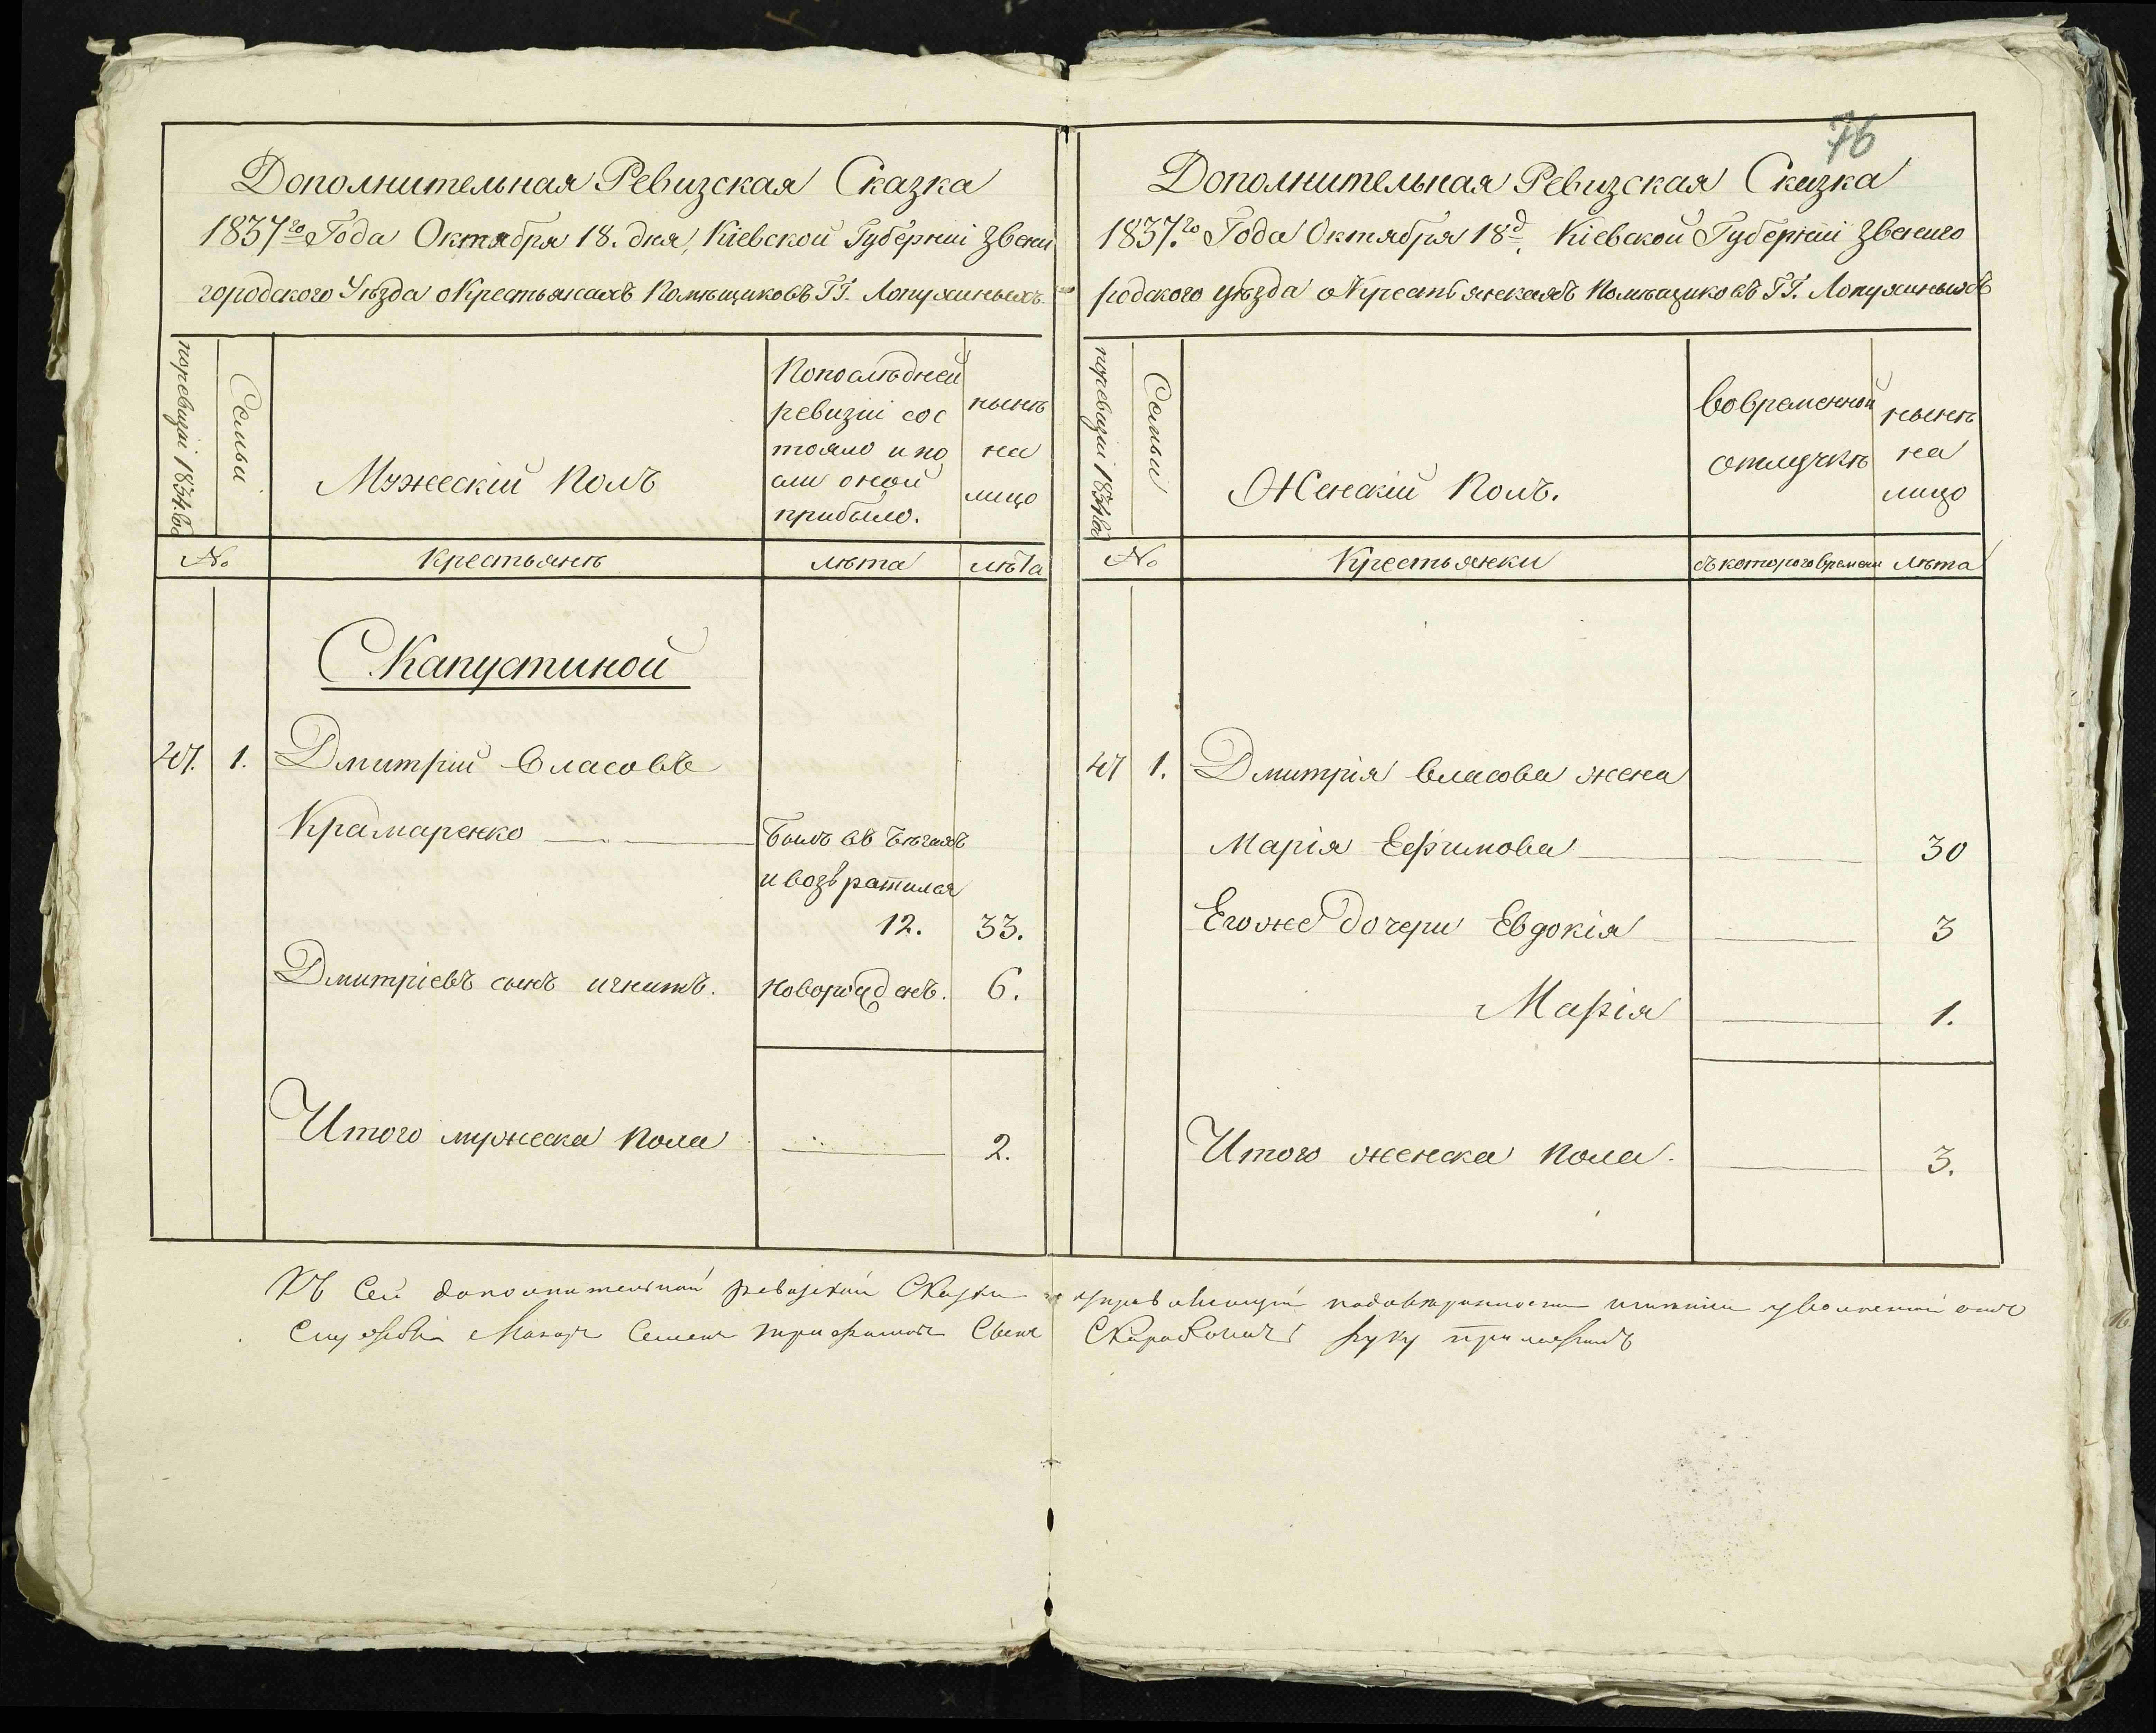 Дополнительная Ревизская Сказка
1837го Года Октября 18. дня, Кіевской Губерніи Звени
городского Уѣзда о Крестьянахъ Помѣщиковъ ГГ. Лопухиныхъ.
по ревизіи 1834. год
Семьи
Мужескій Полъ
По послѣдней
ревизіи сос
тояло и по
сли оной
прибыло.
нынѣ
на
лицо
№
Крестьянѣ
лѣта
лѣта
С. Капустиной
47. 1. Дмитрій Власовъ
Крамаренко
Былъ въ бѣгахъ
и возвратился
12. 33.
Дмитріевъ сынъ Игнатъ. новорожденъ. 6.
Итого мужеска пола 2.
76
Дополнительная Ревизская Сказка
1837.го Года Октября 18д. Кіевской Губерніи Звениго
родского уѣзда о Крестьянкахъ Помѣщиковъ ГГ. Лопухиныхъ
по ревизіи 1834 год
Семьи
Женскій Полъ.
во временной
отлучкѣ
нынѣ
на
лицо
№
Крестьянки
съ которого времени
лѣта
47 1. Дмитрія Власова жена
Марія Ефимова 30
Егоже дочери Евдокія 3
Марія 1.
Итого женска пола. 3.
Къ сей дополнительной ревизской Сказки управляющій
Семенъ руку приложилъ